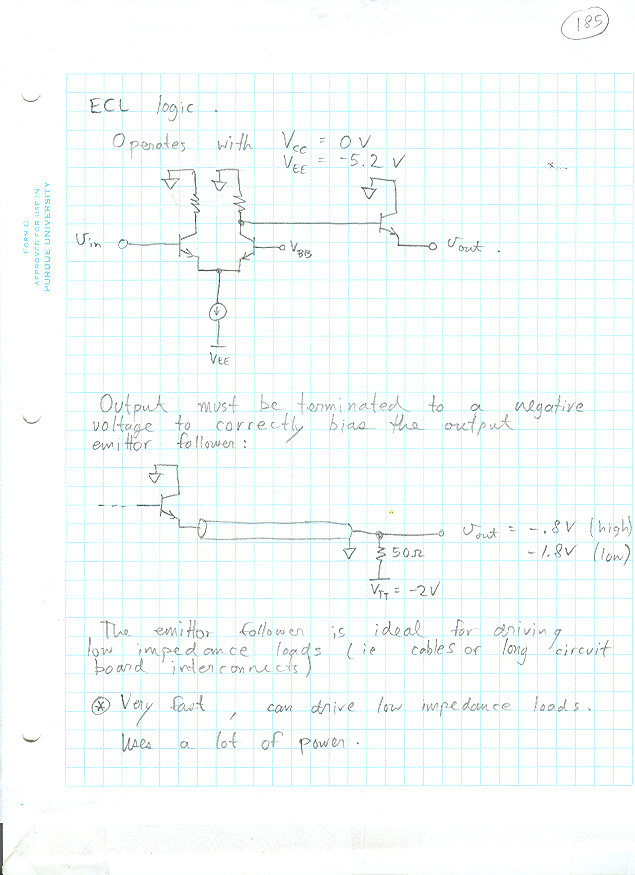 185
FORM C
APPROVED FOR USE IN
PURDUE UNIVERSITY
ECL logic.
Operates with VCC = 0V
VEE = -5.2 V
Vin
VBB
Vout.
VEE
Output must be terminated to a negative
voltage to correctly bias the output
emittor follower:
Vout = -.8V (high)
50Ω
-1.8V (low)
VTT = -2V
The emittor follower is ideal for driving
low impedance loads (ie cables or long circuit
board interconnects)
* Very fast, can drive low impedance loads.
Uses a lot of power.